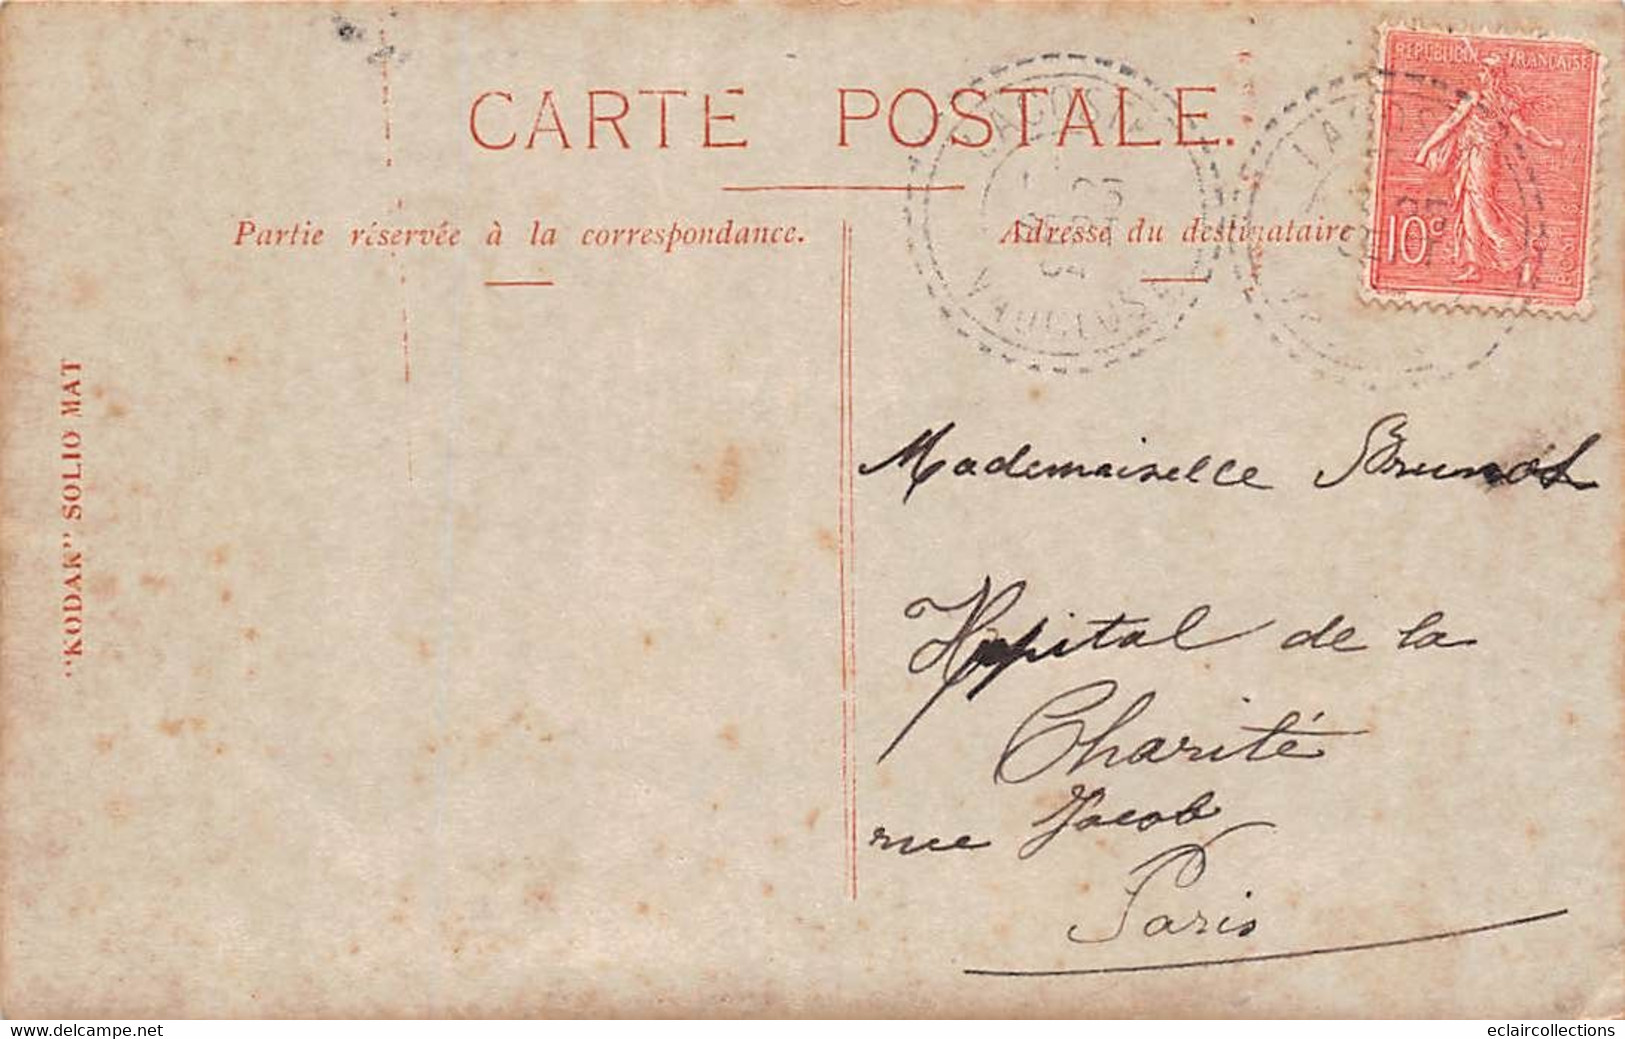 CARTE POSTALE.
Partie réservée à la correspondance.
Adresse du destinataire
REPUBLIQUE FRANÇAISE
10c
SEPT
04
VAUCLUSE
"KODAK" SOLIO MAT
Mademoiselle Brunot
Hopital de la
Charité
rue Jacob
Paris
delcampe.net
eclaircollections